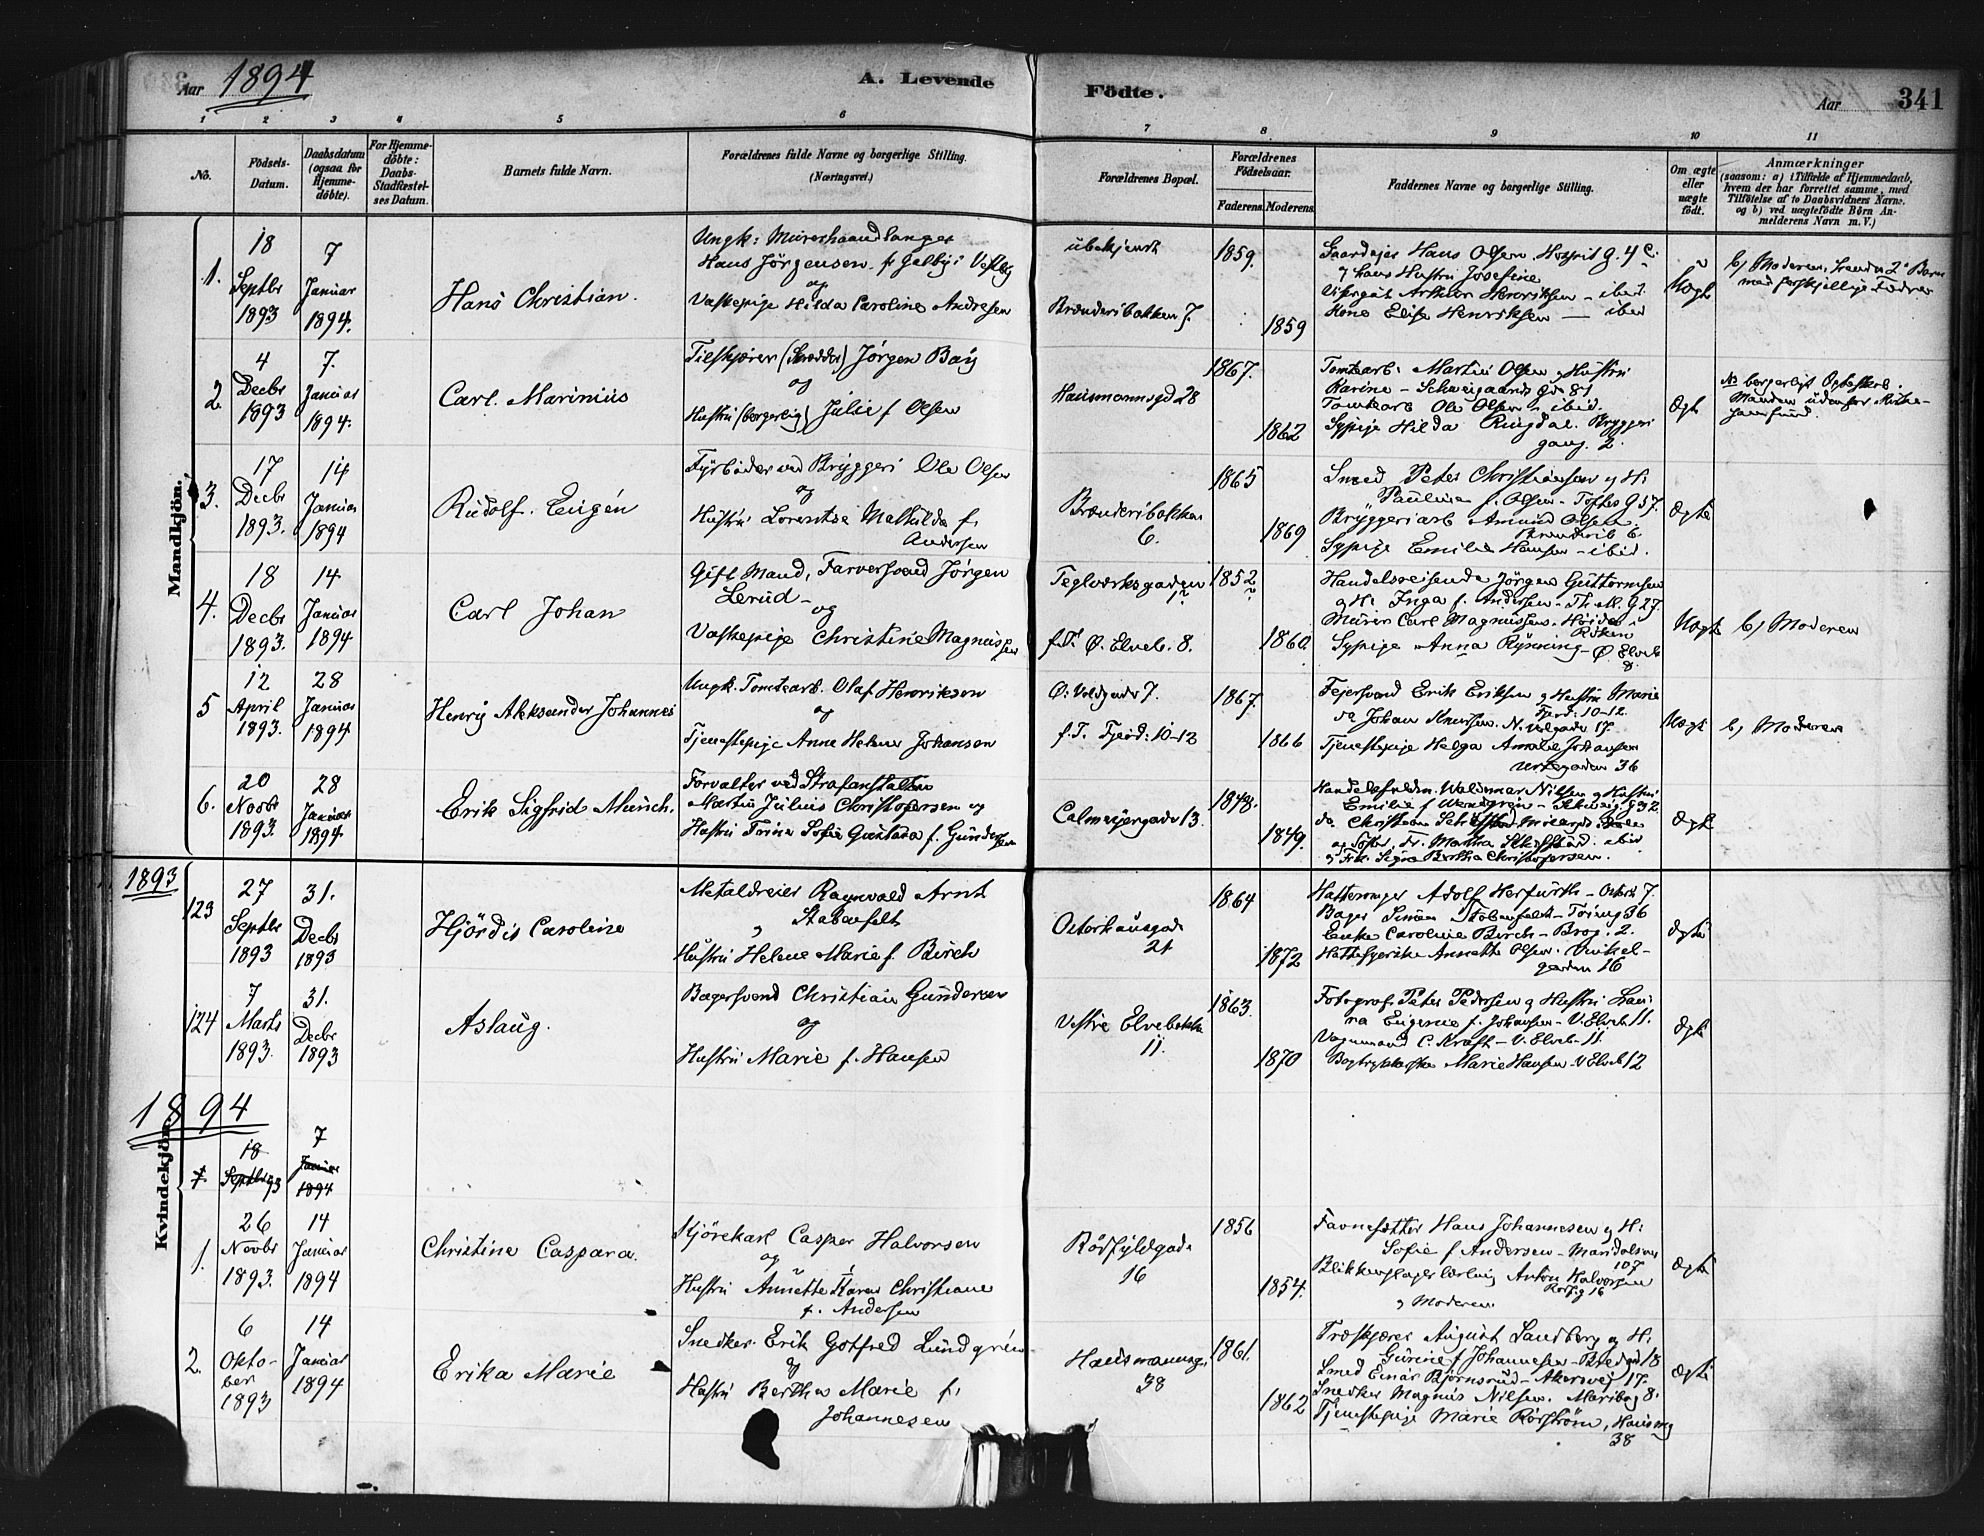 Aar 1894
A. Levende
Födte.
Aar
341
1 2 3 4 5 6 7 8 9 10 11
No.
Födsels-Datum.
Daabsdatum (ogsaa for Hjemme-döbte).
For Hjemme-döbte: Daabs-Stadfæstel-ses Datum.
Barnets fulde Navn.
Forældrenes fulde Navne og borgerlige Stilling. (Næringsvei.)
Forældrenes Bopæl.
Forældrenes Födselsaar.
Faderens. Moderens.
Faddernes Navne og borgerlige Stilling.
Om ægte eller uægte födt.
Anmærkninger
(saasom: a) i Tilfælde af Hjemmedaab, hvem der har forrettet samme, med Tilföielse af to Daabsvidners Navne, og b) ved uægtefödte Börn Anmelderens Navn m. V.)
Mandkjön.
1.
18 Septbr 1893
7 Januar 1894.
Hans Christian.
Ungk: Murerhaandlanger
Hans Jörgensen f Jelby i Vestby
og
Vaskepige Hilda Caroline Andresen
ubekjendt
Brænderibakken 7.
1859.
1859
Gaardejer Hans Olsen Hospit g. 4 c.
og hans Hustru Josefine
Arthur Henriksen - ibid.
Kone Elise Henriksen — ibid
Uægte
b) Moderen, hendes 2det Barn
med forskjellige Fædre
2.
4 Decbr 1893
7. Januar 1894.
Carl. Marinius
Tilskjærer (Skrædder) Jörgen Bay
og
Hustru (borgerlig) Julie f Olsen
Hausmannsgd 28
1867.
1862
Tomtearb. Martin Olsen og Hustru
Karine - Schweigaards Gd. 81
Tomtearb Ole Olsen - ibid.
Sypige Hilda Ringdal. Bryggeri
gang. 2.
Ægte
NB borgerligt Ægteskab.
Manden udenfor Kirke-
samfund.
3.
17 Decbr 1893.
14 Januar 1894
Rudolf. Eugén
Fyrböder ved Bryggeri Ole Olsen
og
Hustru Lorentse Mathilde f.
Andersen
Brænderibakken
6.
1865
1869
Smed Peter Christiansen og H.
Pauline f. Olsen - Toftes G 57.
Bryggeriarb Amund Olsen.
Brænderib 6.
Sypige Emilie Hansen - ibid.
Ægte
4.
18 Decbr 1893.
14 Januar 1894
Carl Johan
Gift Mand, Farversvend Jörgen
Lerud -
og
Vaskepige Christine Magnussen
Teglværksgaden
12
f. T. Ø. Elveb. 8.
1852
1860.
Handelsreisende Jörgen Guttormsen
og H. Inga f. Andersen - Th. M. g 27.
Murer Carl Magnussen.
Röken
Sypige Anna Rynning - Ø. Elveb
8
Uægte
b) Moderen
5
12 April 1893.
28 Januar 1894
Henry Aleksander Johannes
Ungk. Tomtearb. Olaf Henriksen
og
Tjenestepige Anne Helene Johansen
Ø. Voldgade 7.
f. T. Fjerd: 10-12
1867.
1866
Fejersvend Erik Eriksen og Hustru Marie
Fjerd: 10-12.
Johan Knudsen. N. Voldgade 17.
Tjenestepige Helga Amalie Johansen
36
Uægte
b) Moderen
6.
20 Novbr 1893.
28 Januar 1894
Erik Sigfrid Munch.
Forvalter ved Strafanstalten
Martin Julius Christofersen og
Hustru Trine Sofie Gustava f. Gundersen
Calmeyergade 13.
1848.
1849.
Handelsfuldm. Waldemar Nilsen og Hustru
og Frk. Signe Bertha Christofersen.
Ægte
1893
123
27 Septbr 1893
31. Decbr 1893
Hjördis Caroline
Metaldreier Ragnvald Arnt
Stabenfelt
og
Hustru Helene Marie f. Birch
Osterhausgade
21
1864
1872
Hattemager Adolf Herfurth - Osterh 7.
Bager Simon Stabenfeldt - Torvug 36
Enke Caroline Birch - Brog. 2.
Annette Olsen. Vinkel-
gaden 16
Ægte
124
7 Marts 1893.
31. Decbr 1893
Aslaug.
Bagersvend Christian Gundersen
og
Hustru Marie f. Hansen
Vestre Elvebakke
11.
1863.
1870
Fotograf Peter Pedersen og Hustru Lau-
ra Eugenie f. Johansen - V. Elveb 11.
Vognmand C. Kraft - V. Elveb 11
Marie Hansen - V Elveb 12
Ægte
Kvindekjön.
1894
1.
18 Septbr 93
7 Januar 1894
1.
26 Novbr 1893.
14 Januar 1894
Christine Caspara.
Kjörekarl Casper Halvorsen
og
Hustru Annette Karen Christiane
f. Andersen
Rödfyldgade
16
1856
1854.
Favnesætter Hans Johannesen og H.
Sofie f Andersen - Maridalsvei
107
Blikkenslagerlærling Anton Halvorsen
Rodf. g 16
og Moderen.
Ægte
2.
6 Okto-ber 1893
14 Januar 1894
Erika Marie
Snedker Erik Gotfred Lundgrén
og
Hustru Berthe Marie f.
Johannesen
Hausmannsg.
38
1861.
1862
Træskjærer August Landberg og H.
Gurine f Johannesen - Bredgd 18
Smed Einar Björnsrud - Akersvej 17.
Snedker Magnus Nilsen. Maribog 8.
Tjenestepige Marie Rörström, Hausmg
38
Ægte